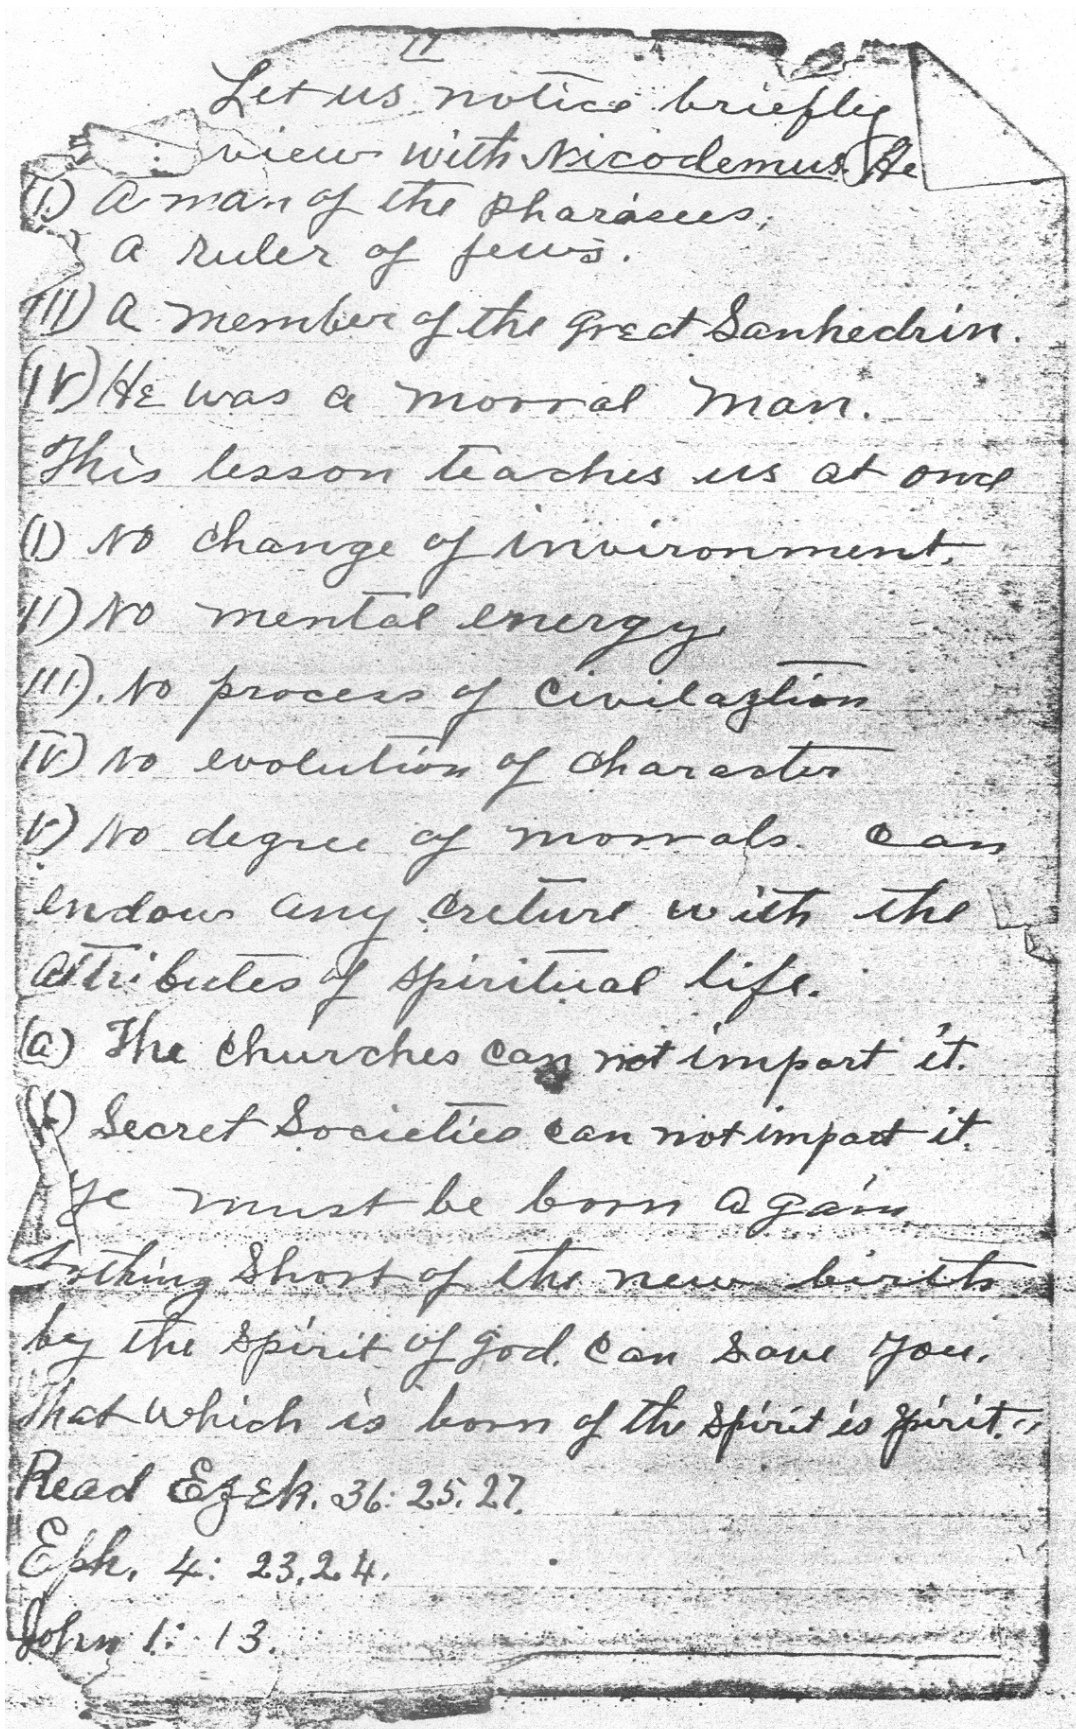 11
Let us notice briefly
view with Nicodemus. He
(I) A man of the pharasees,
A ruler of jews.
III) A member of the great Sanhedrin.
(IV) He was a morral man.
This lesson teaches us at once
(I) No change of invironment.
II) No mental energy
III). No process of Civilaztion
IV) No evolution of character
V) No degree of morrals. Can
endow any creture with the
attributes of spiritual life.
(a) The churches can not impart it.
Secret Societies can not impart it.
Ye must be born again,
nothing short of the new birth
by the spirit of god. can save you.
That which is born of the spirit is spirit."
Read Ezek. 36: 25.27.
Eph. 4: 23,24.
John 1: 13.